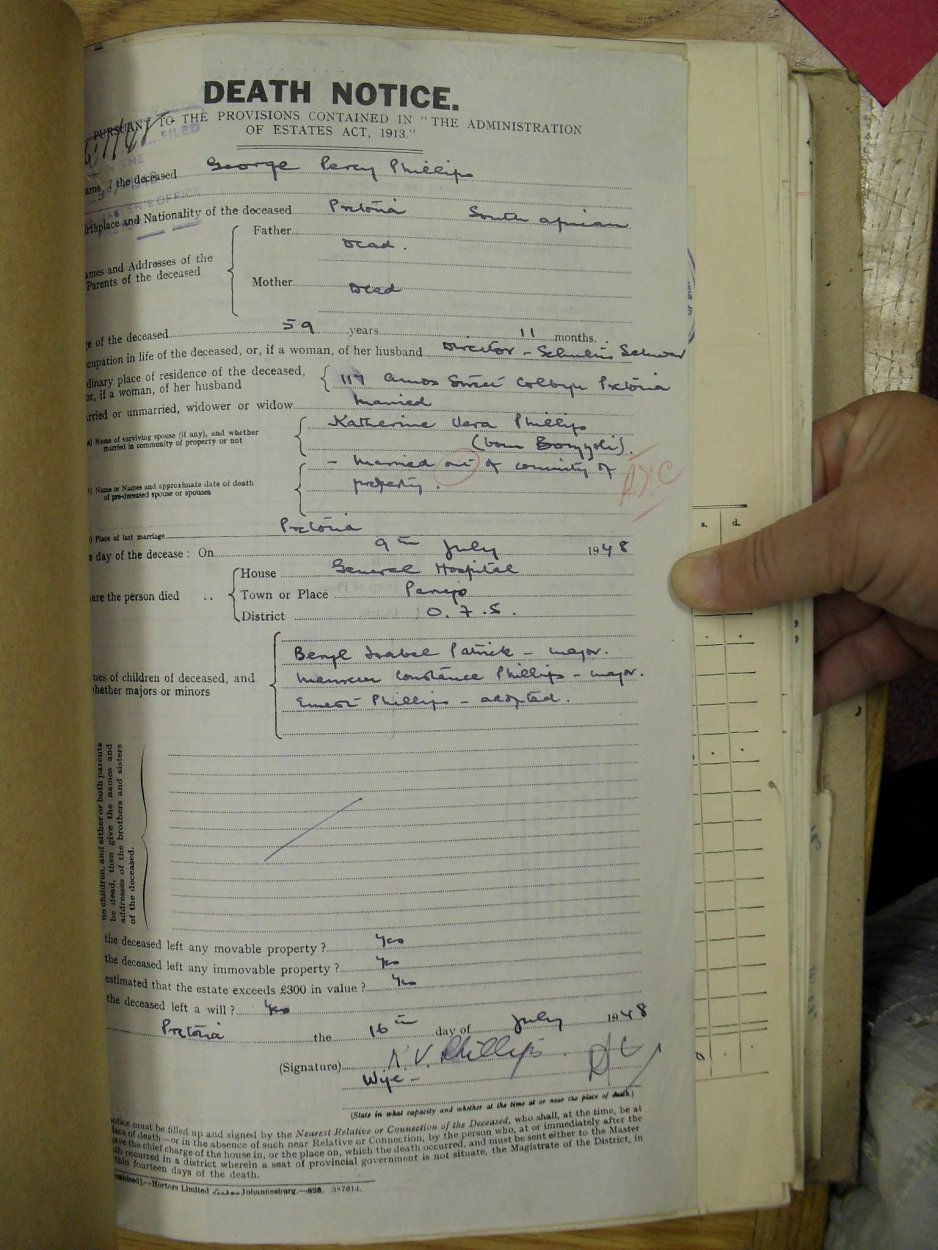 DEATH NOTICE.
PURSUANT TO THE PROVISIONS CONTAINED IN "THE ADMINISTRATION
OF ESTATES ACT, 1913."
ame of the deceased George Percy Phillips
irthplace and Nationality of the deceased Pretoria South African
ames and Addresses of the
Parents of the deceased
Father Dead.
Mother Dead
ge of the deceased 59 years 11 months.
ccupation in life of the deceased, or, if a woman, of her husband Director -
dinary place of residence of the deceased,
or, if a woman, of her husband
117 Amos Street Colbyn Pretoria
arried or unmarried, widower or widow Married
a) Name of surviving spouse (if any), and whether
married in community of property or not
Katherine Vera Phillips
(born
b) Name or Names and approximate date of death
of pre-deceased spouse or spouses
- Married out of community of
property.
c) Place of last marriage Pretoria
e day of the decease: On 9th July 1948
ere the person died ..
House General Hospital
Town or Place Parys
District O.F.S.
mes of children of deceased, and
whether majors or minors
Beryl Isabel Patrick - major.
Maureen Constance Phillips - major.
Ernest Phillips - adopted.
no children, and either or both parents
be dead, then give the names and
addresses of the brothers and sisters
of the deceased.
s. d.
the deceased left any movable property? Yes
the deceased left any immovable property? Yes
estimated that the estate exceeds £300 in value? Yes
the deceased left a will? Yes
Pretoria the 16th day of July 1948
(Signature) K. V. Phillips
Wife -
(State in what capacity and whether at the time at or near the place of death.)
otice must be filled up and signed by the Nearest Relative or Connection of the Deceased, who shall, at the time, be at
lace of death—or in the absence of such near Relative or Connection, by the person who, at or immediately after the
ave the chief charge of the house in, or the place on, which the death occurred, and must be sent either to the Master
th occurred in a district wherein a seat of provincial government is not situate, the Magistrate of the District, in
thin fourteen days of the death.
Hortors Limited Johannesburg.—828. 387614.